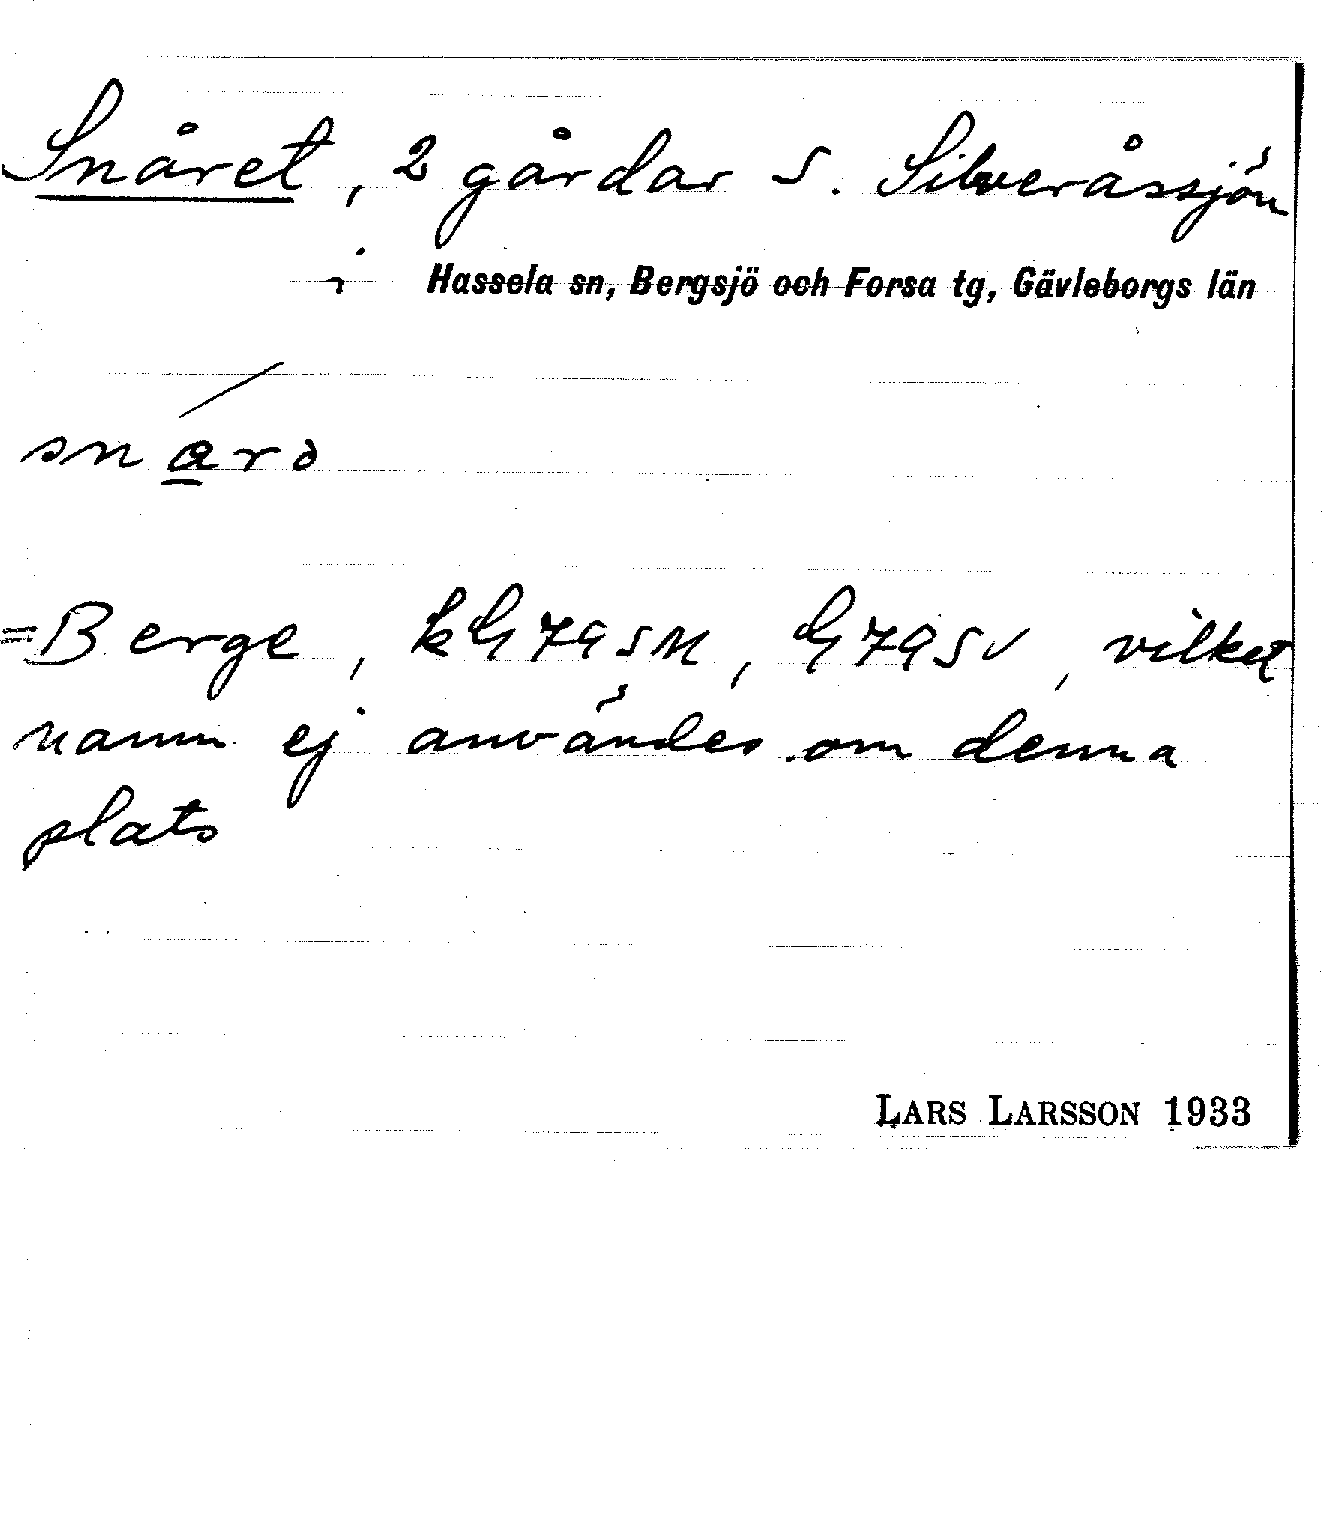 Snåret, 2 gårdar S. Silveråssjön
i Hassela sn, Bergsjö och Forsa tg, Gävleborgs län
snarə
=Berge, kG79SM, G79SV, vilket
namn ej användes om denna
plats
LARS LARSSON 1933